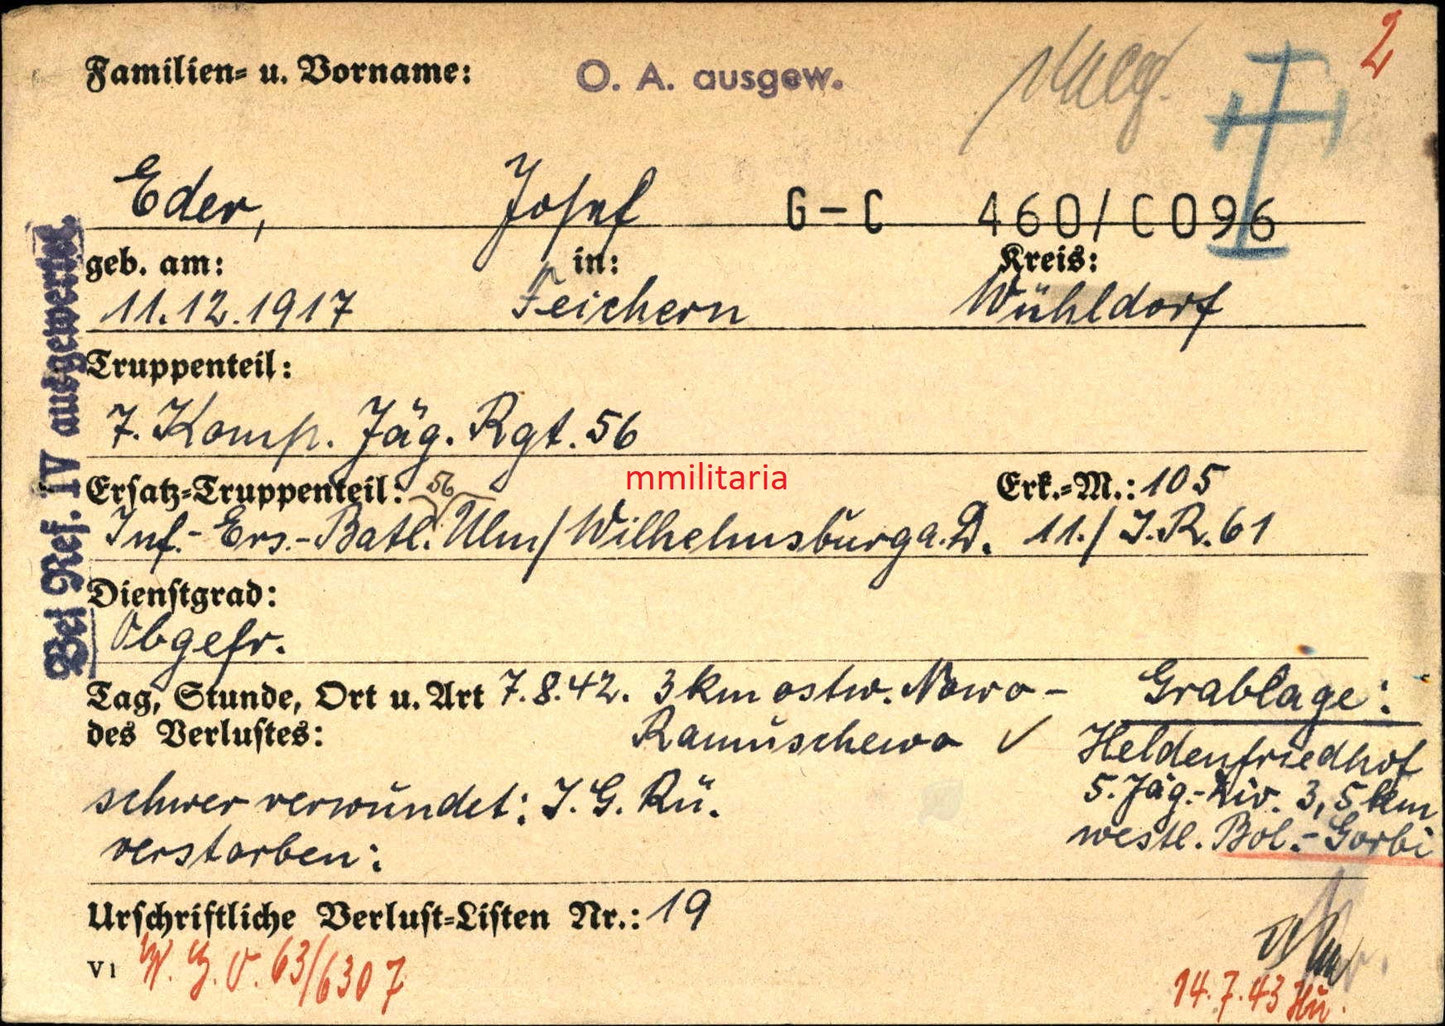 2
Familien- u. Vorname:
O. A. ausgew.
Eder, Josef G-C 460/C096
geb. am: in: Kreis:
11.12.1917 Feichern Wühldorf
Truppenteil:
7. Komp. Jäg. Rgt. 56
mmilitaria
Ersatz-Truppenteil: 56 Erk.-M.: 105
Inf.-Ers.-Batl. Ulm/Wilhelmsburg a. D. 11./J.R. 61
Dienstgrad:
Obgefr.
Tag, Stunde, Ort u. Art 7.8.42. 3 km ostw. Nowo-
des Verlustes: Ramuschewo ✓
schwer verwundet: I. G. Rü.
verstorben:
Grablage:
Heldenfriedhof
5. Jäg.-Div. 3,5 km
westl. Bol.-Gorbi
Urschriftliche Verlust-Listen Nr.: 19
V1
63/6307
14.7.43
Bei Ref. IV ausgewertet